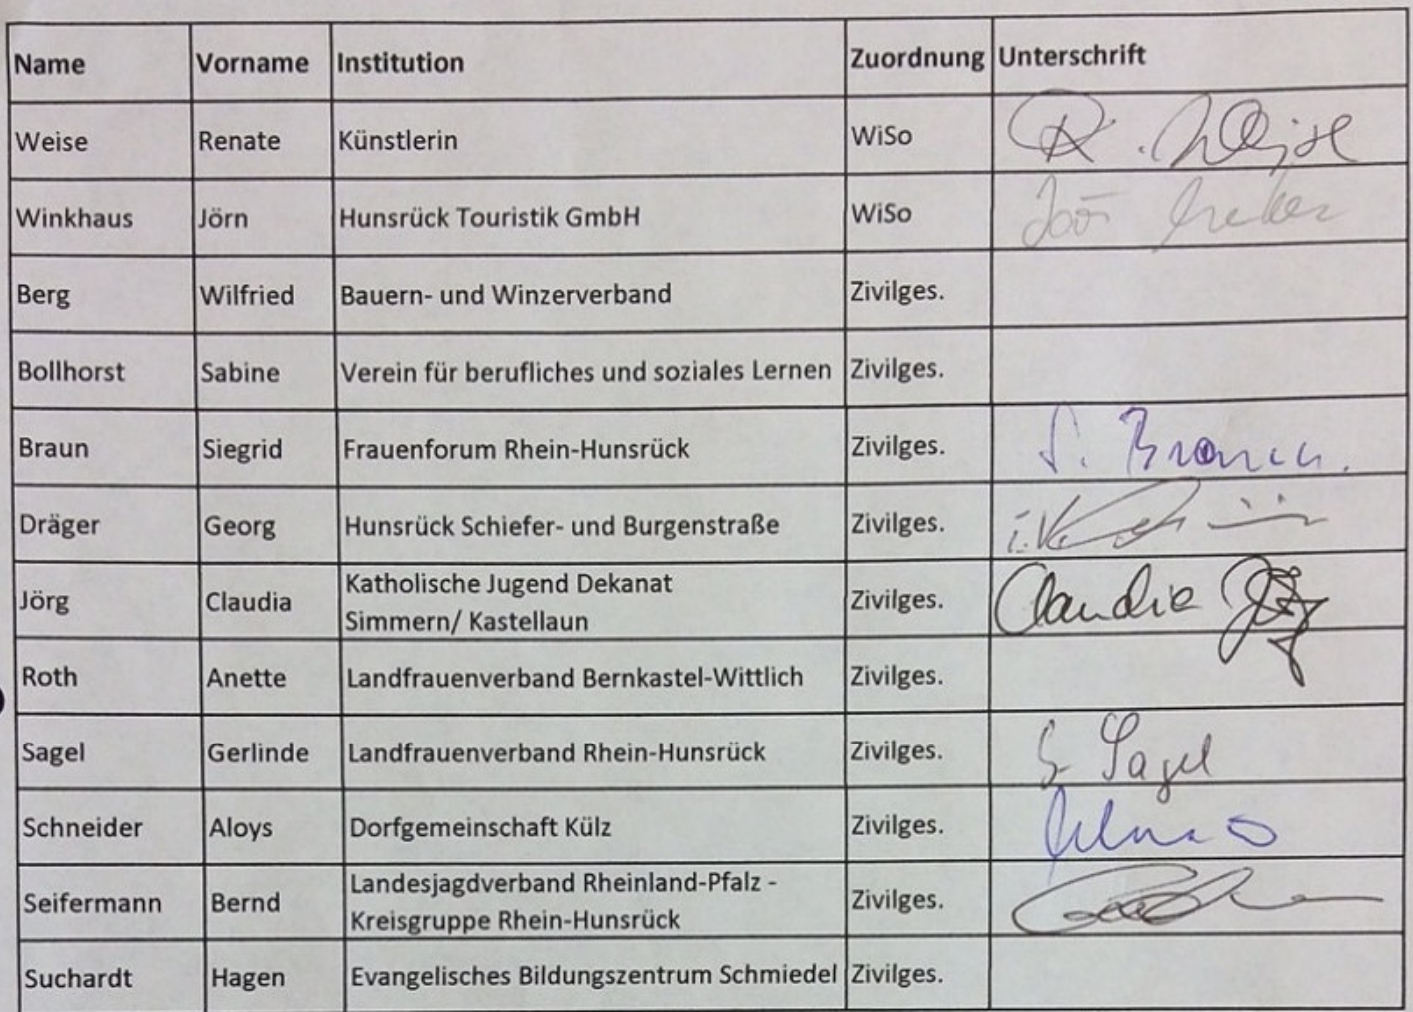 Name Vorname Institution Zuordnung Unterschrift
Weise Renate Künstlerin WiSo R. Weise
Winkhaus Jörn Hunsrück Touristik GmbH WiSo
Berg Wilfried Bauern- und Winzerverband Zivilges.
Bollhorst Sabine Verein für berufliches und soziales Lernen Zivilges.
Braun Siegrid Frauenforum Rhein-Hunsrück Zivilges. S. Braun
Dräger Georg Hunsrück Schiefer- und Burgenstraße Zivilges.
Jörg Claudia Katholische Jugend Dekanat
Simmern/ Kastellaun Zivilges. Claudia Jörg
Roth Anette Landfrauenverband Bernkastel-Wittlich Zivilges.
Sagel Gerlinde Landfrauenverband Rhein-Hunsrück Zivilges. G. Sagel
Schneider Aloys Dorfgemeinschaft Külz Zivilges.
Seifermann Bernd Landesjagdverband Rheinland-Pfalz -
Kreisgruppe Rhein-Hunsrück Zivilges.
Suchardt Hagen Evangelisches Bildungszentrum Schmiedel Zivilges.